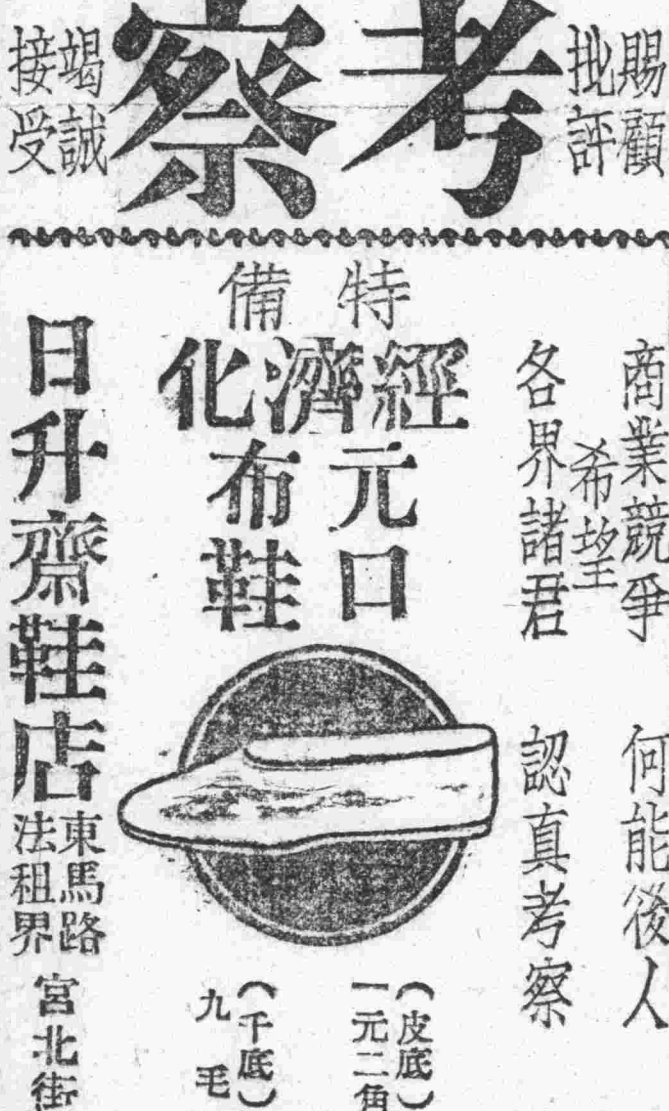 賜顧
批評
考察
竭誠
接受
商業競爭 何能後人
希望
各界諸君 認真考察
特備
經濟化
元口
布鞋
（皮底）
一元二角
（千底）
九毛
日升齋鞋店
東馬路
法租界
宮北街